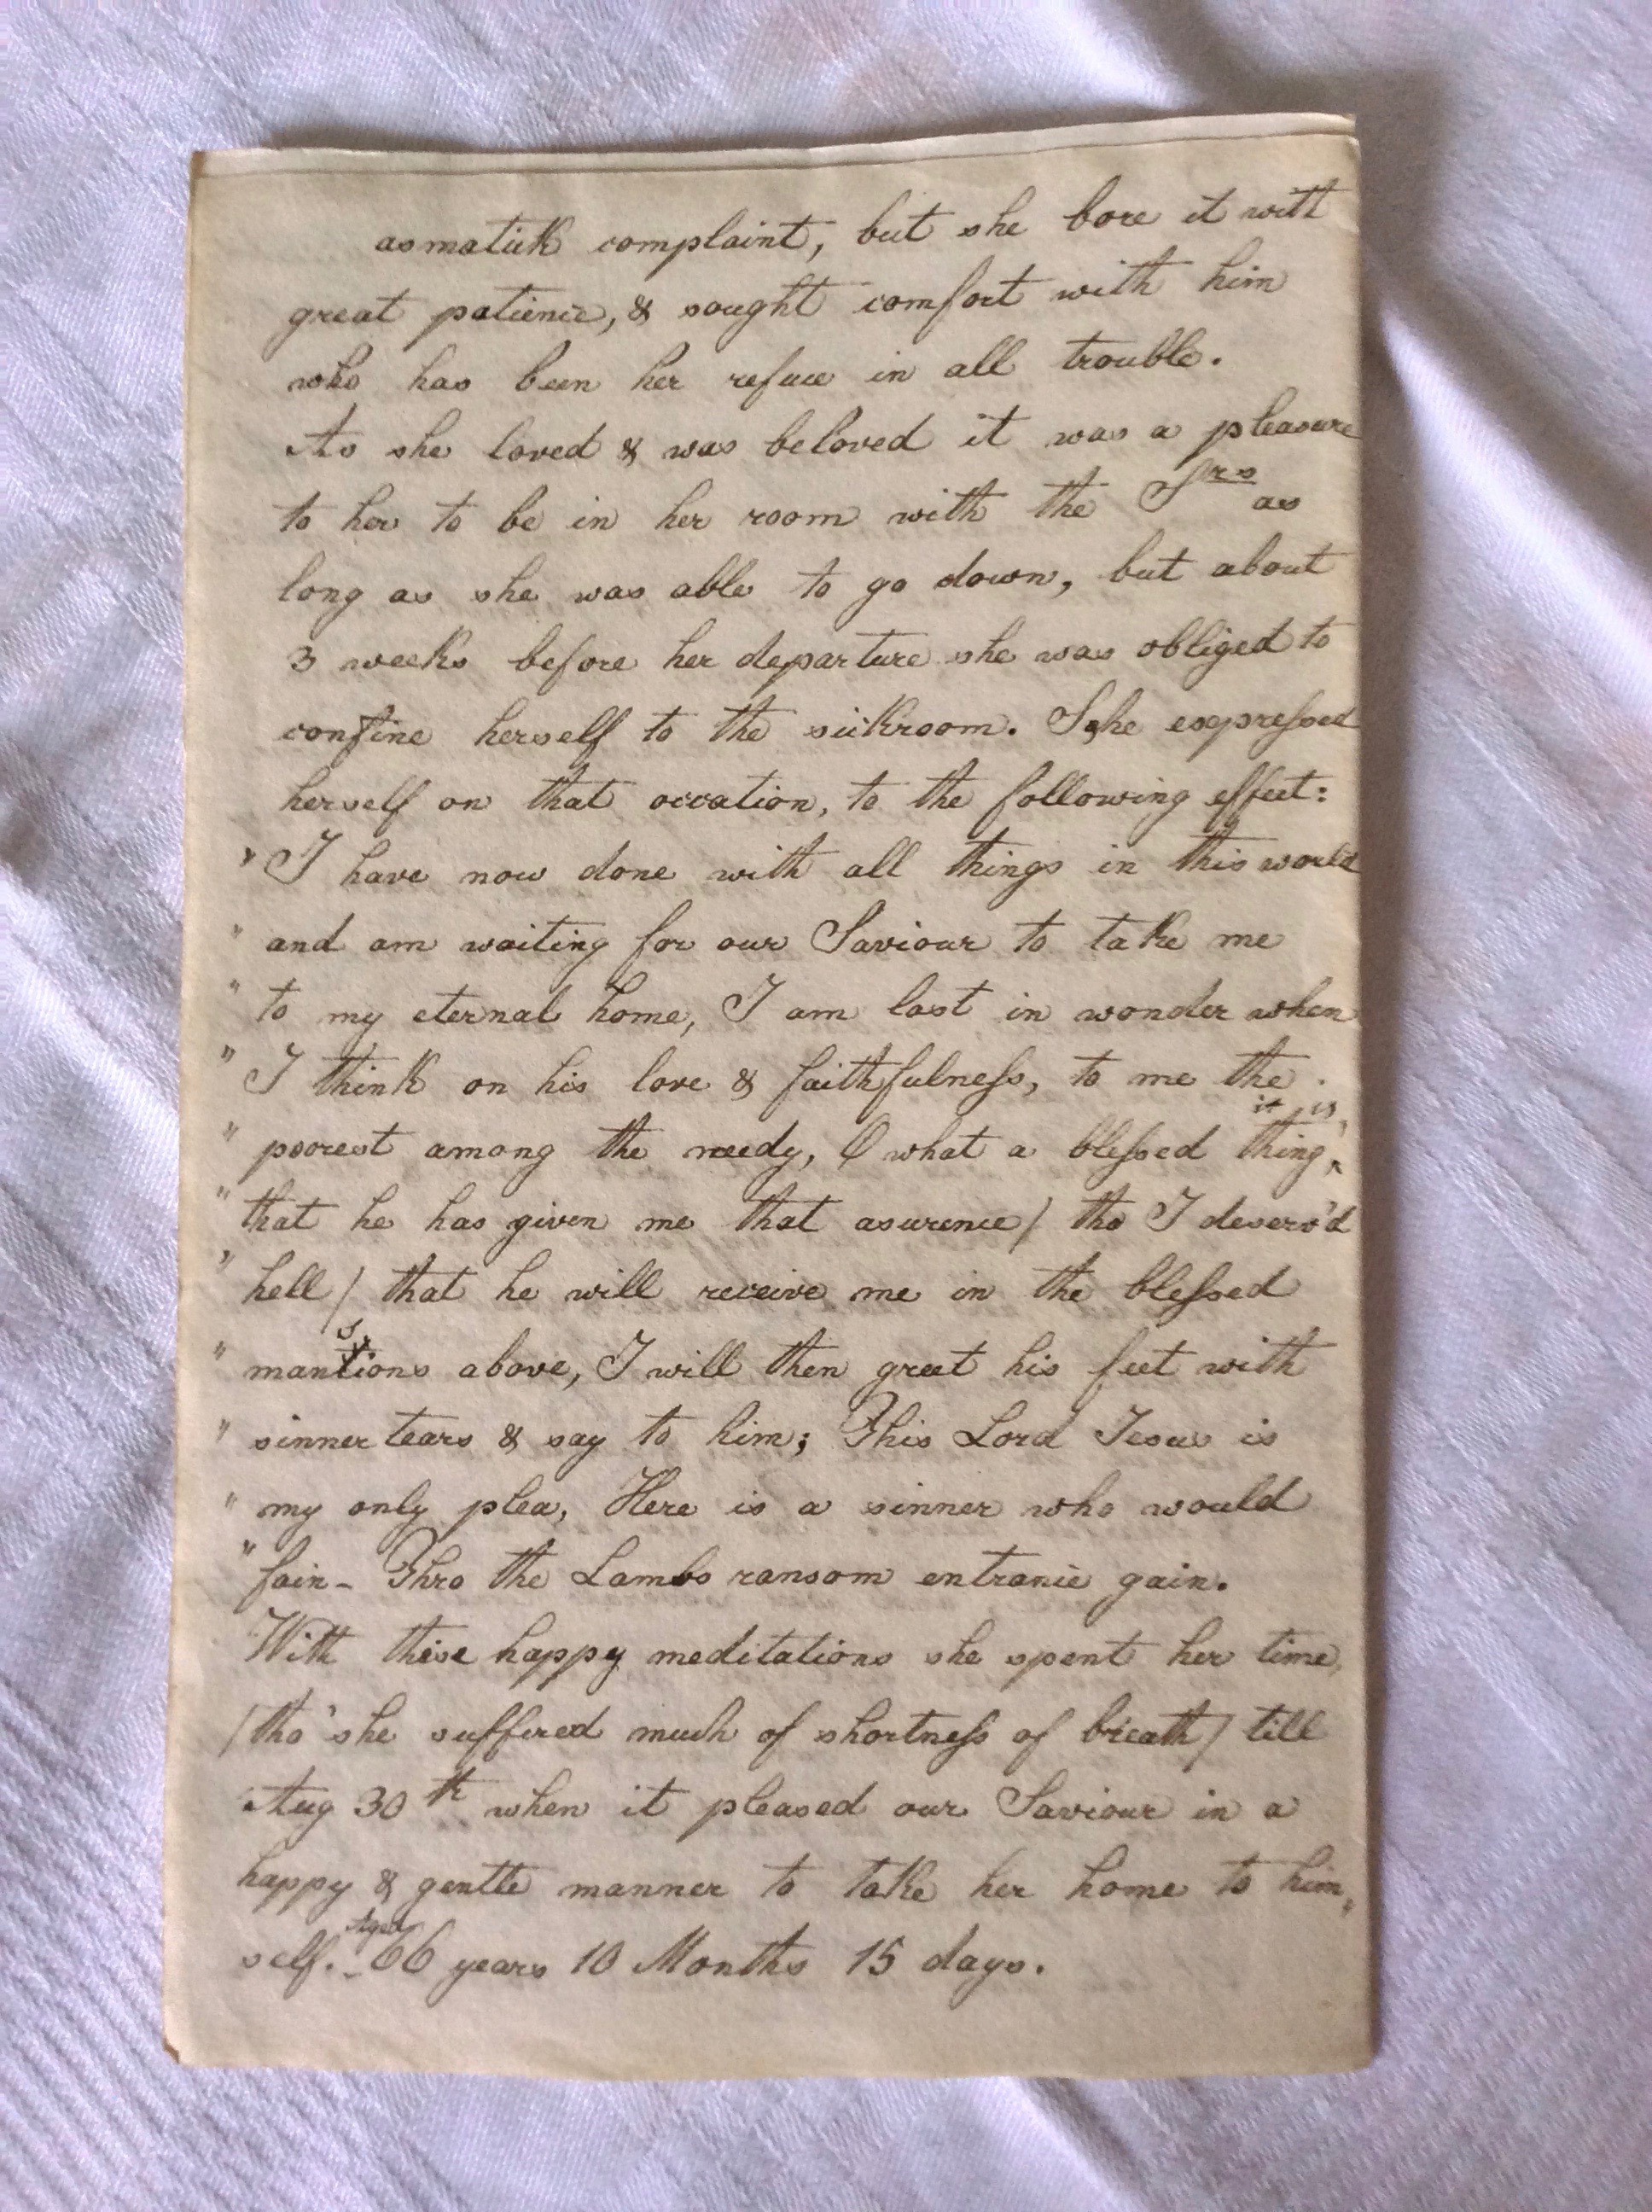 asmatick complaint, but she bore it with
great patience, & sought comfort with him
who has been her refuce in all trouble.
As she loved & was beloved it was a pleasure
to her to be in her room with the Srs as
long as she was able to go down, but about
3 weeks before her departure she was obliged to
confine herself to the sickroom. She expressed
herself on that occation, to the following effect:
" I have now done with all things in this world
" and am waiting for our Saviour to take me
" to my eternal home, I am lost in wonder when
" I think on his love & faithfulness, to me the
" poorest among the needy, O what a blessed thing, it is,
" that he has given me that asurence / tho I deserv'd
" hell / that he will receive me in the blessed
" mansions above, I will then greet his feet with
" sinner tears & say to him; This Lord Jesus is
" my only plea, Here is a sinner who would
" fain - Thro the Lambs ransom entrance gain.
With these happy meditations she spent her time,
/ tho' she suffered much of shortness of breath / till
Aug 30th when it pleased our Saviour in a
happy & gentle manner to take her home to him,,
self. - Aged 66 years 10 Months 15 days.